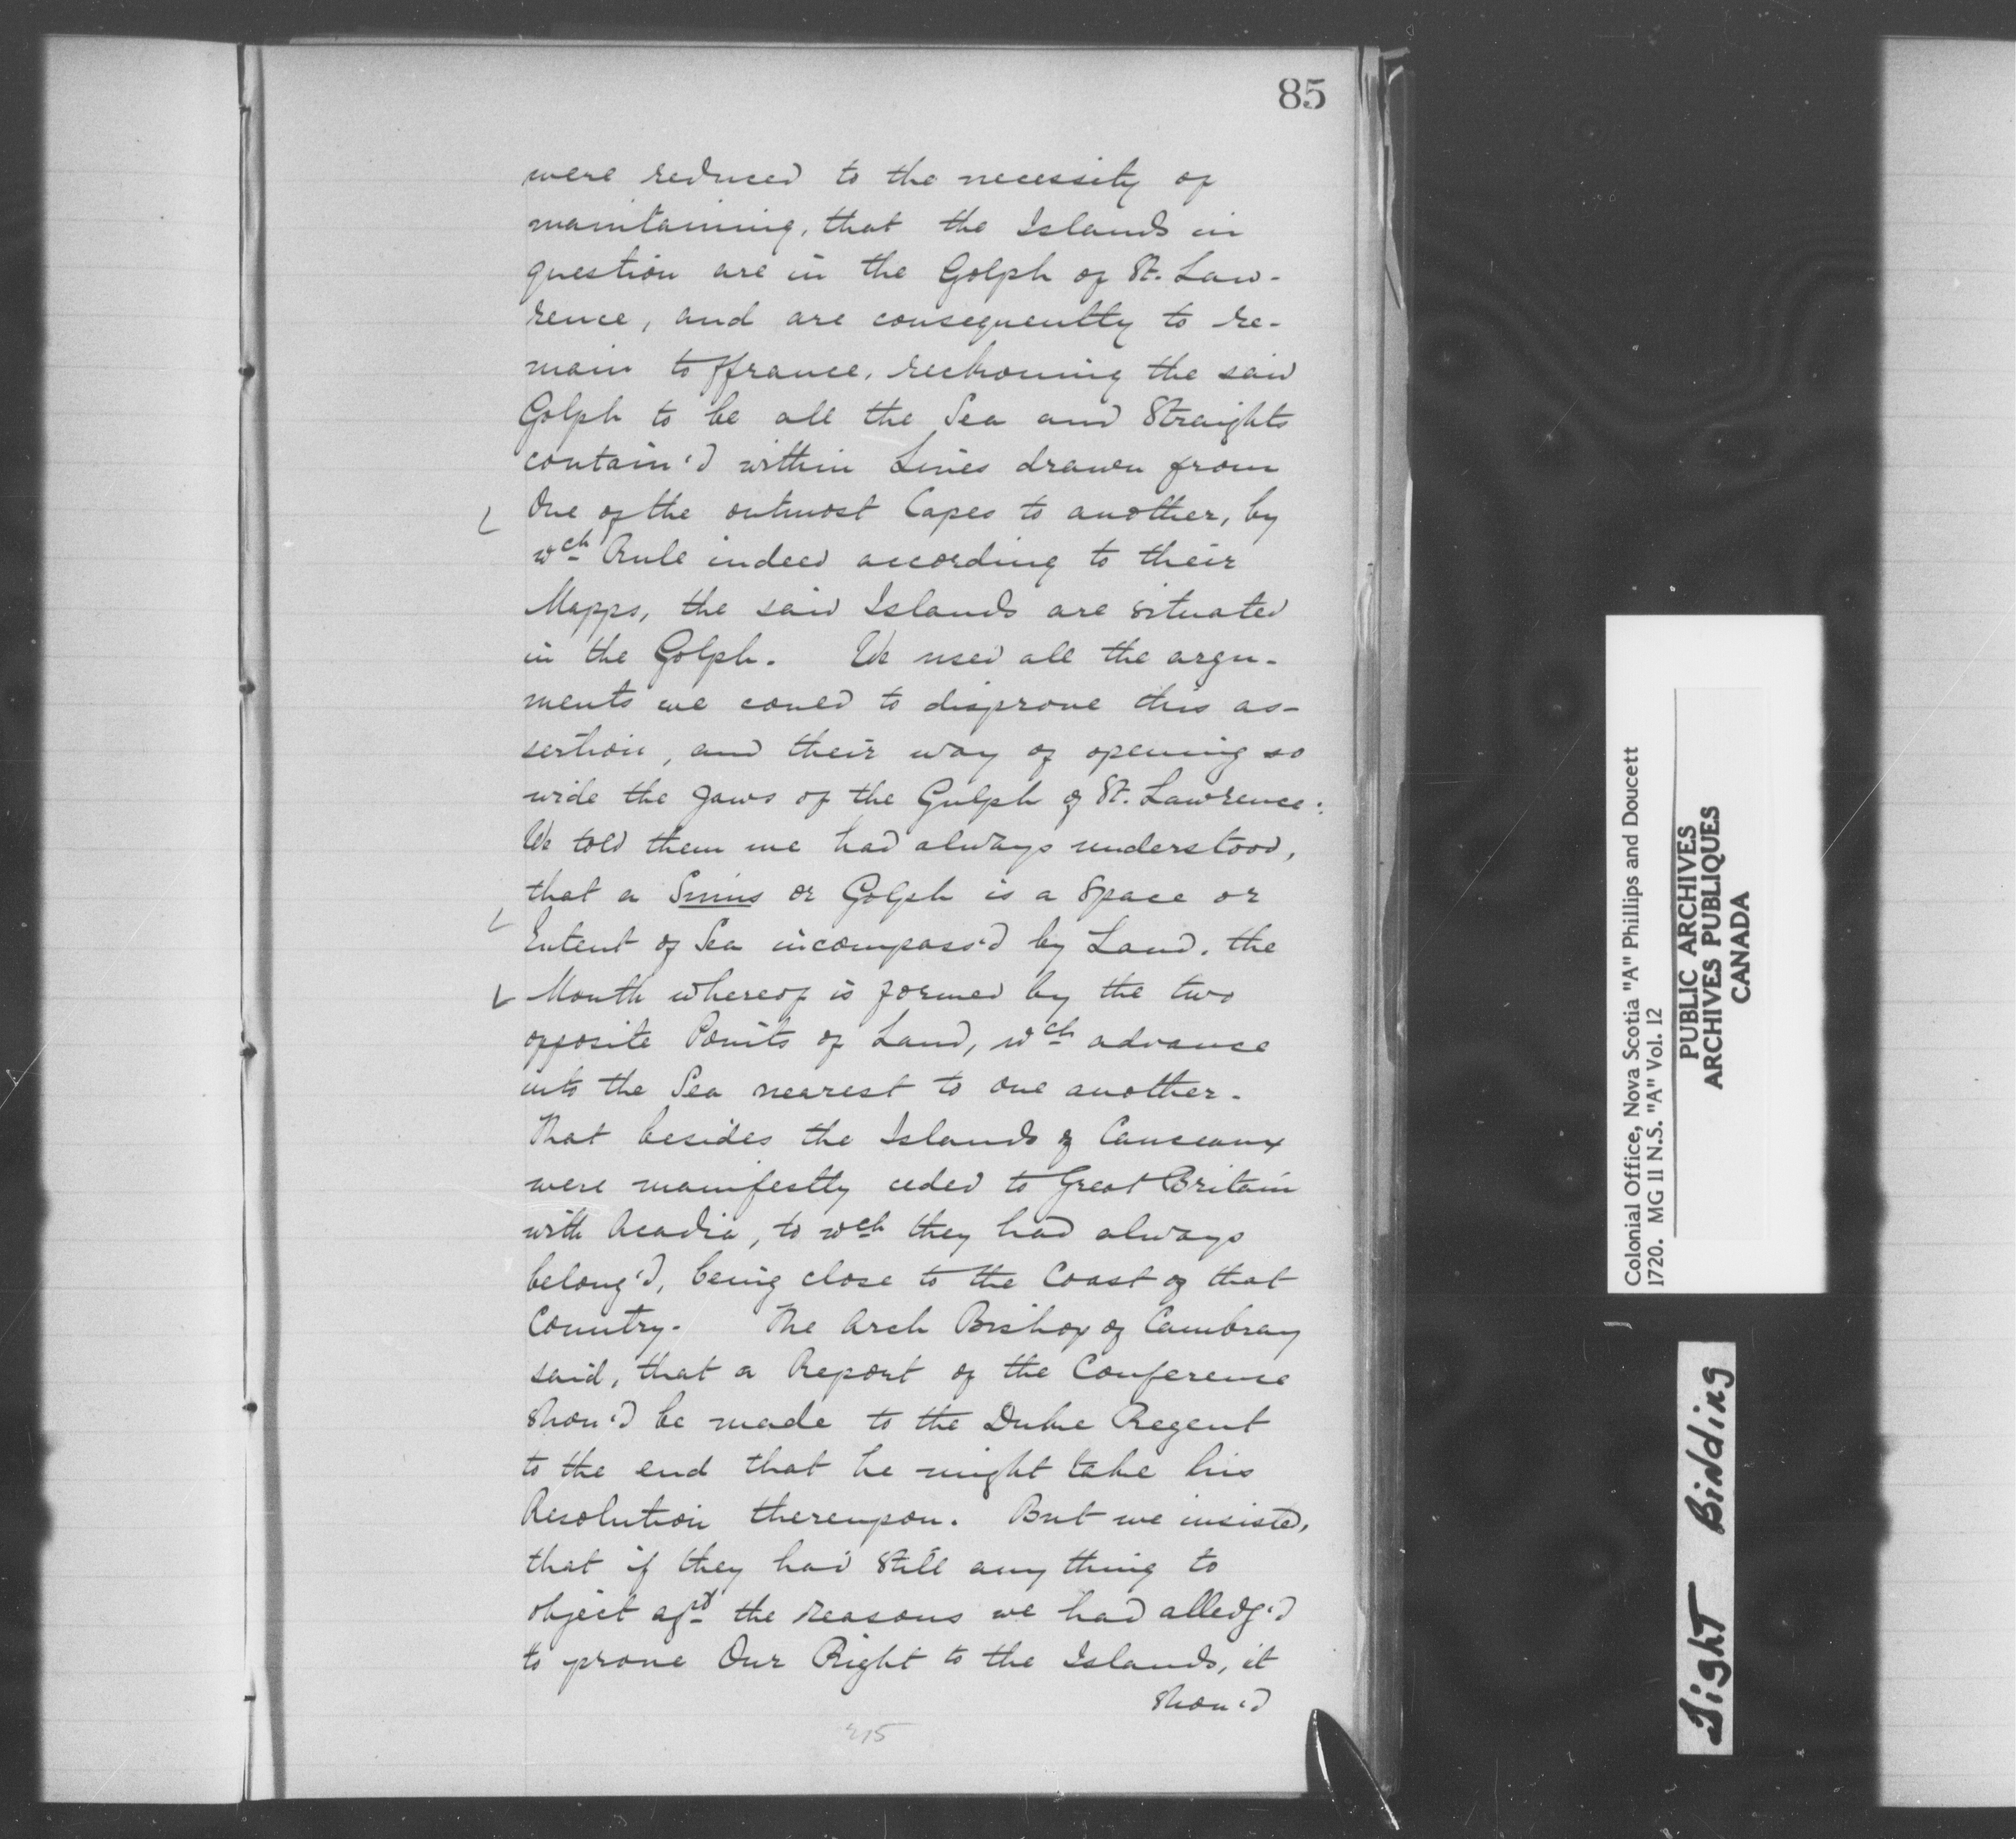 85
were reduced to the necessity of
maintaining, that the Islands in
question are in the Golph of St. Law-
rence, and are consequently to re-
main to ffrance, reckoning the said
Golph to be all the Sea and Straights
contain'd within Lines drawn from
One of the outmost Capes to another, by
wch Rule indeed according to their
Mapps, the said Islands are situated
in the Golph. We used all the argu-
ments we coued to disprove this as-
sertion, and their way of opening so
wide the Jaws of the Gulph of St. Lawrence:
We told them we had always understood,
that a Sinus or Golph is a Space or
Extent of Sea incompass'd by Land, the
Mouth whereof is formed by the two
opposite Points of Land, wch advance
into the Sea nearest to one another.
That besides the Islands of Canceaux
were manifestly ceded to Great Britain
with Acadia, to wch they had always
belong'd, being close to the Coast of that
Country. The Arch Bishop of Cambray
said, that a Report of the Conference
shou'd be made to the Duke Regent
to the end that he might take his
Resolution thereupon. But we insisted,
that if they had still any thing to
object agst the reasons we had alledg'd
to prove Our Right to the Islands, it
shou'd
215
Colonial Office, Nova Scotia "A" Phillips and Doucett
1720. MG II N.S. "A" Vol. 12
PUBLIC ARCHIVES
ARCHIVES PUBLIQUES
CANADA
Tight Binding